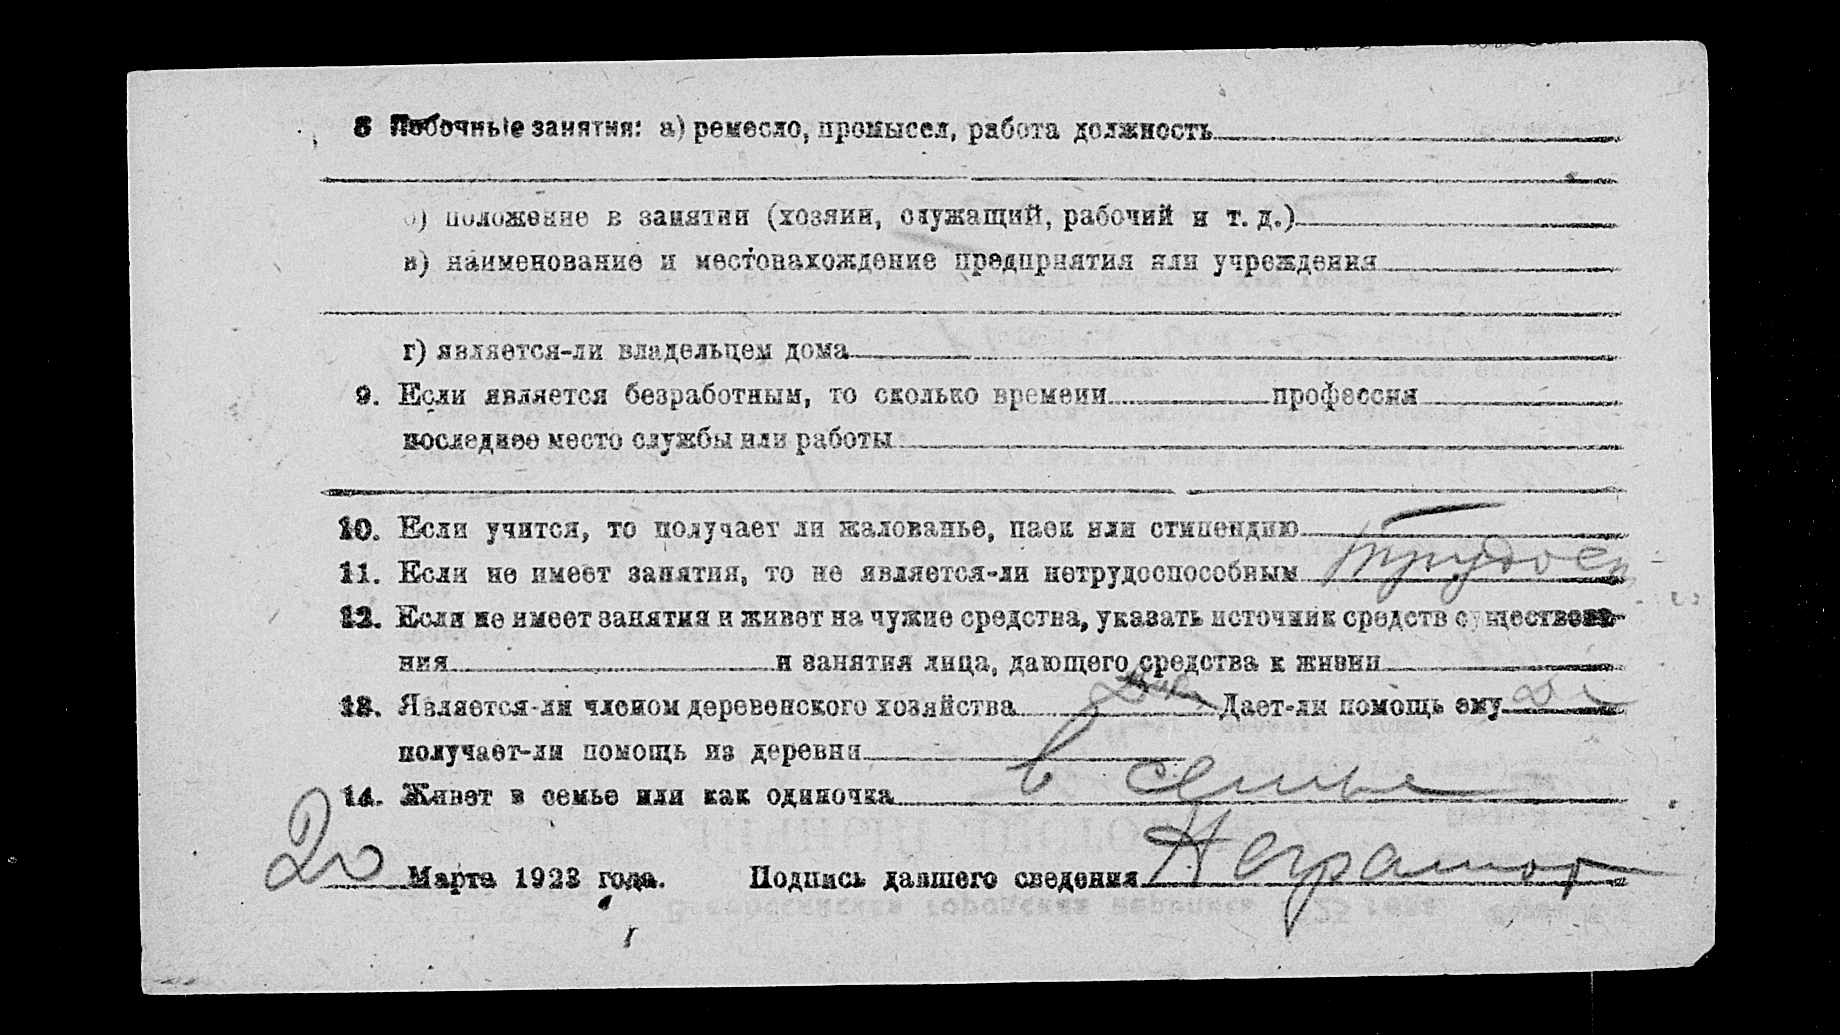 8 Побочные занятия: а) ремесло, промысел, работа должность
б) положение в занятии (хозяин, служащий, рабочий и т. д.)
в) наименование и местонахождение предприятия или учреждения
г) является-ли владельцем дома
9. Если является безработным, то сколько времени профессия
последнее место службы или работы
10. Если учится, то получает ли жалованье, паек или стипендию
11. Если не имеет занятия, то не является-ли нетрудоспособным трудосп
12. Если не имеет занятия и живет на чужие средства, указать источник средств существова-
ния и занятия лица, дающего средства к жизни
13. Является-ли членом деревенского хозяйства Дает-ли помощь ему
получает-ли помощь из деревни
14. Живет в семье или как одиночка в семье
20 Марта 1923 года. Подпись давшего сведения Неграмот